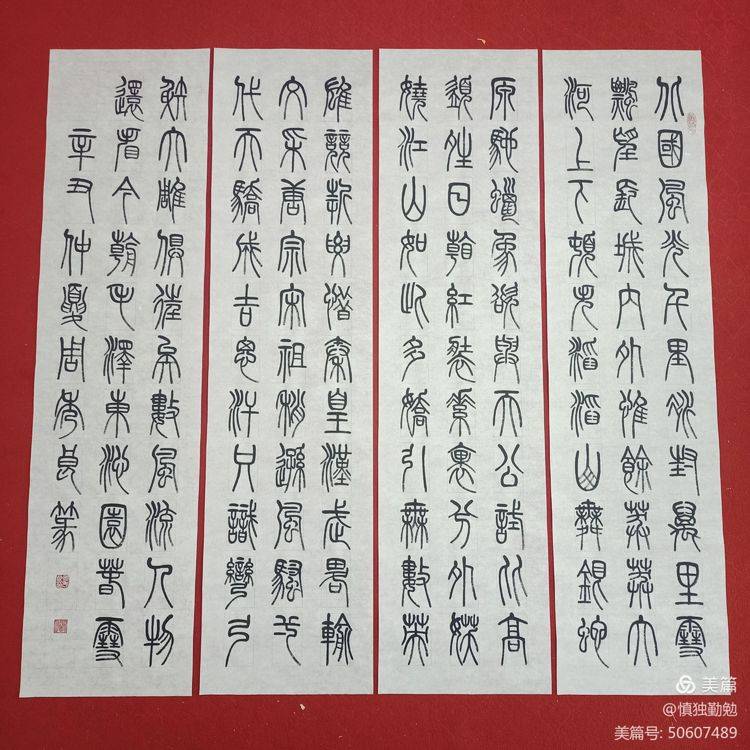 北國風光千里冰封萬里雪
飄望長城内外惟餘莽莽大
河上下頓失滔滔山舞銀蛇
原馳蠟象欲與天公試比高
須晴日看紅裝素裹分外妖
嬈江山如此多嬌引無數英
雄競折腰惜秦皇漢武略輸
文采唐宗宋祖稍遜風騷一
代天驕成吉思汗只識彎弓
射大雕俱往矣數風流人物
還看今朝毛澤東沁園春雪
辛丑仲夏周秀良篆
美篇
@慎独勤勉
美篇号: 50607489